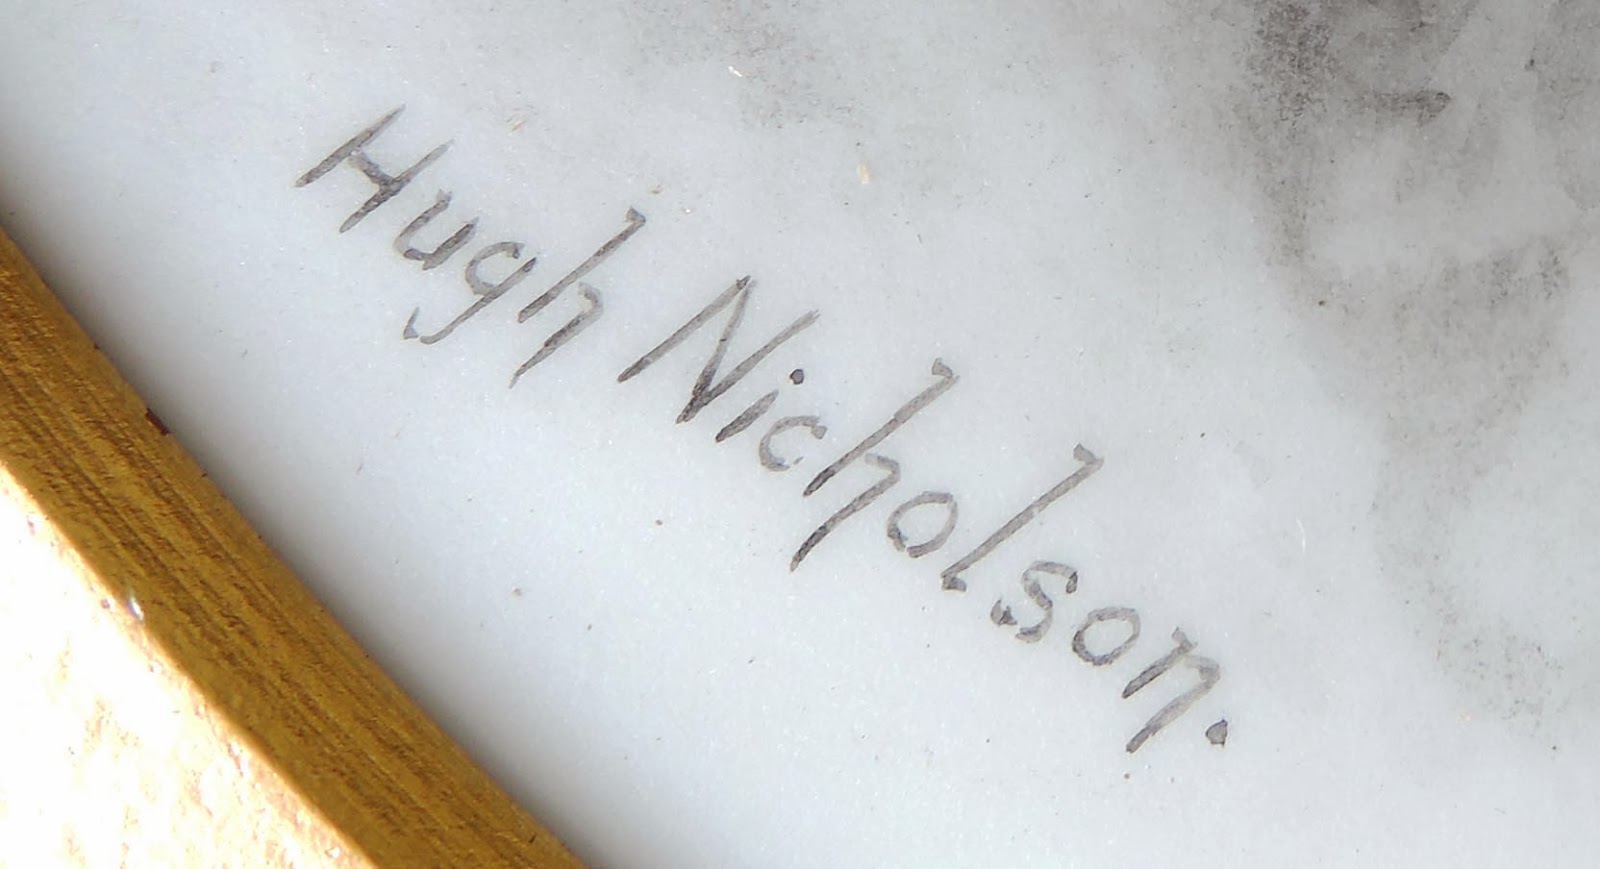 Hugh Nicholson.